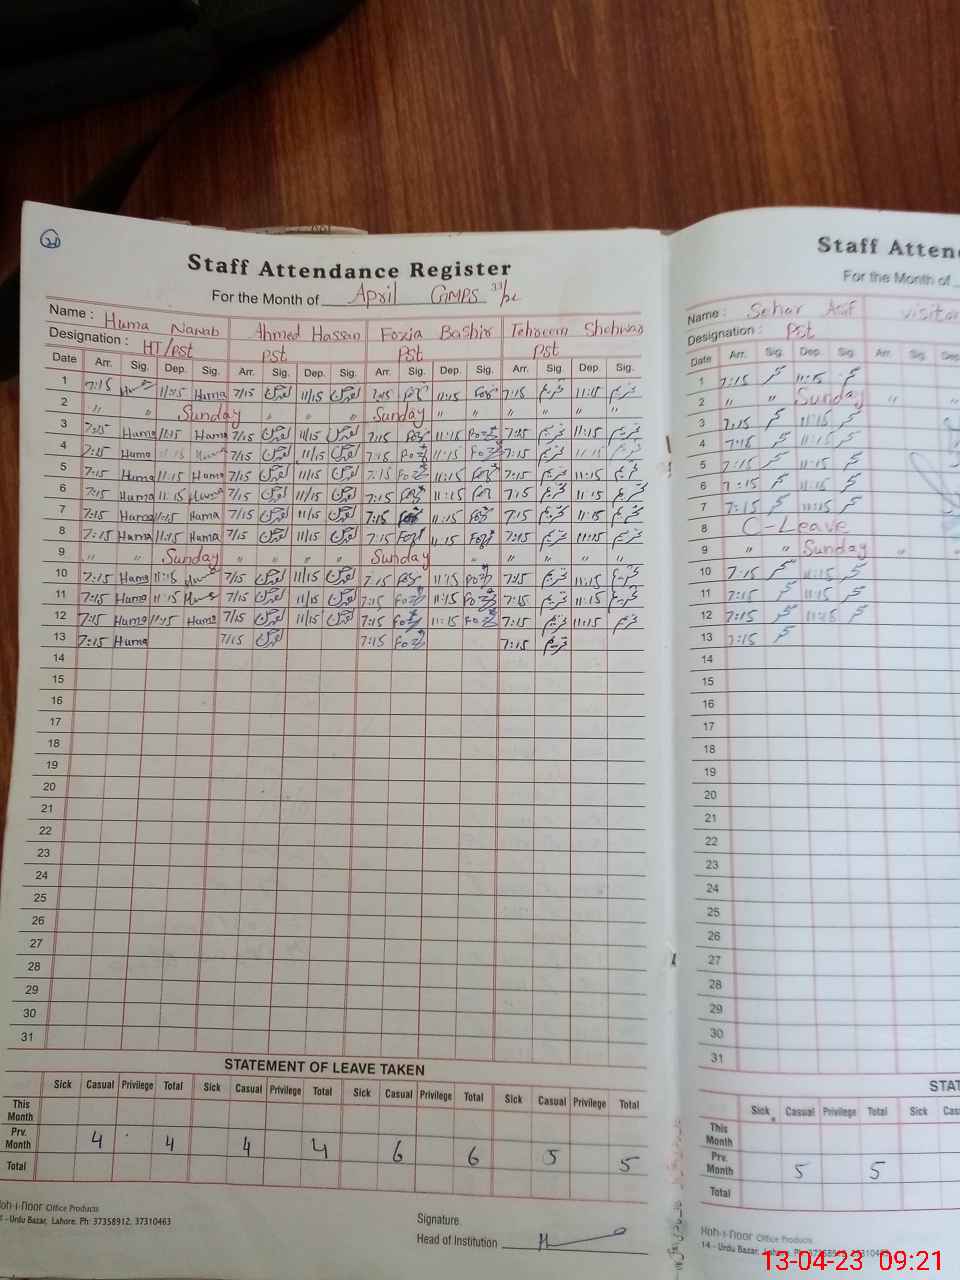 20
Staff Attendance Register
For the Month of April GMPS 33/2L
Name : Huma Nanab Ahmed Hassan Fozia Bashir Tehreem Shehwar
Designation : HT/Pst Pst Pst Pst
Date Arr. Sig. Dep. Sig. Arr. Sig. Dep. Sig. Arr. Sig. Dep. Sig. Arr. Sig. Dep. Sig.
1 7:15 Huma 11:15 Huma 7/15 11/15 7:15 Foz 11:15 Foz 7:15 11:15
2 " " Sunday " " Sunday " " " " " "
3 7:15 Huma 11:15 Huma 7/15 11/15 7:15 Foz 11:15 Foz 7:15 11:15
4 7:15 Huma 11:15 Huma 7/15 11/15 7:15 Foz 11:15 Foz 7:15 11:15
5 7:15 Huma 11:15 Huma 7/15 11/15 7:15 Foz 11:15 Foz 7:15 11:15
6 7:15 Huma 11:15 Huma 7/15 11/15 7:15 Foz 11:15 Foz 7:15 11:15
7 7:15 Huma 11:15 Huma 7/15 11/15 7:15 Foz 11:15 Foz 7:15 11:15
8 7:15 Huma 11:15 Huma 7/15 11/15 7:15 Foz 11:15 Foz 7:15 11:15
9 " " Sunday " " " " Sunday " " " " " "
10 7:15 Huma 11:15 Huma 7/15 11/15 7:15 Foz 11:15 Foz 7:15 11:15
11 7:15 Huma 11:15 Huma 7/15 11/15 7:15 Foz 11:15 Foz 7:15 11:15
12 7:15 Huma 11:15 Huma 7/15 11/15 7:15 Foz 11:15 Foz 7:15 11:15
13 7:15 Huma 7/15 7:15 Foz 7:15
14
15
16
17
18
19
20
21
22
23
24
25
26
27
28
29
30
31
STATEMENT OF LEAVE TAKEN
Sick Casual Privilege Total Sick Casual Privilege Total Sick Casual Privilege Total Sick Casual Privilege Total
This Month
Prv. Month 4 4 4 4 6 6 5 5
Total
Koh-i-noor Office Products
14 - Urdu Bazar, Lahore. Ph: 37358912, 37310463
Signature
Head of Institution
Staff Atten
For the Month of
Name : Sehar Asif visitor
Designation : Pst
Date Arr. Sig. Dep. Sig. Arr. Sig. Dep
1 7:15 11:15
2 " " Sunday " "
3 7:15 11:15
4 7:15 11:15
5 7:15 11:15
6 7:15 11:15
7 7:15 11:15
8 C-Leave
9 " " Sunday " "
10 7:15 11:15
11 7:15 11:15
12 7:15 11:15
13 7:15
14
15
16
17
18
19
20
21
22
23
24
25
26
27
28
29
30
31
STAT
Sick Casual Privilege Total Sick Cas
This Month
Prv. Month 5 5
Total
Koh-i-noor Office Products
14 - Urdu Bazar, Lahore. Ph: 37358912, 37310463
13-04-23 09:21